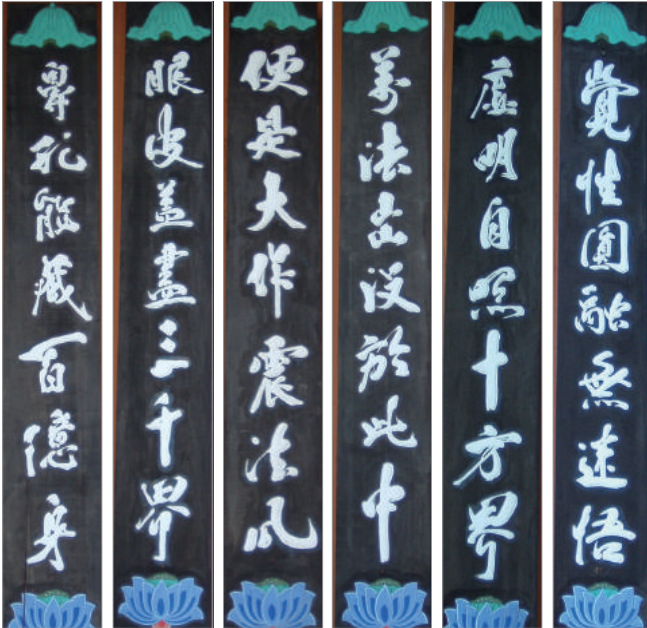 覺性圓融無迷悟
虛明自照十方界
萬法出沒於此中
便是大作震法風
眼皮盖盡三千界
鼻孔能藏百億身